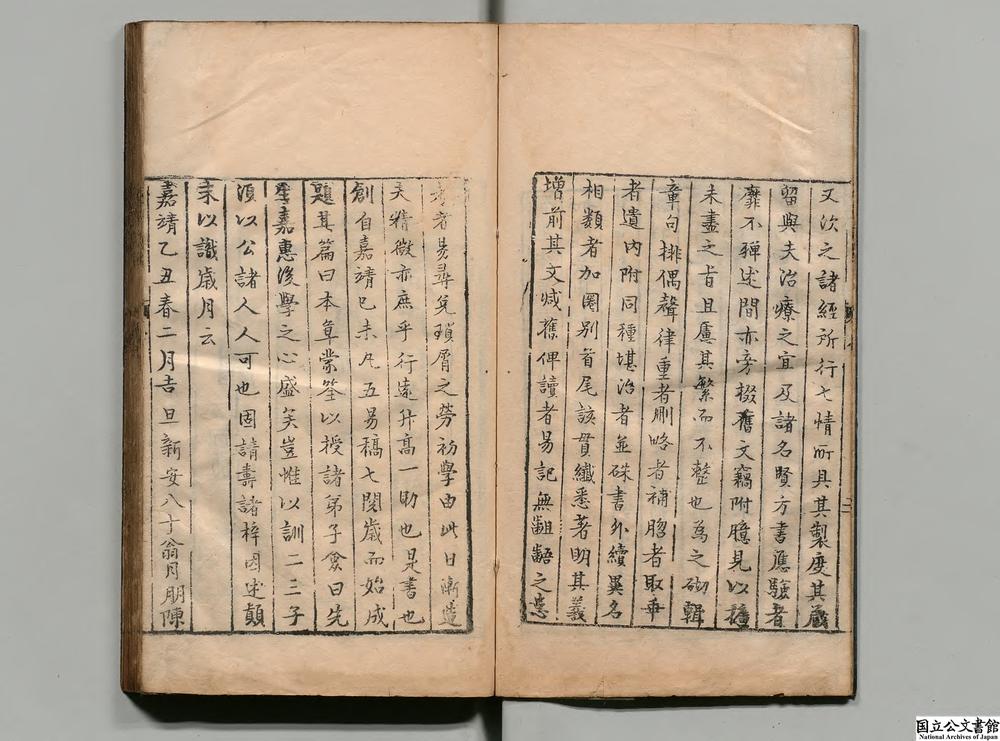 又次之諸經所行七情所具其製度其藏
留與夫治療之宜及諸名賢方書應驗者
靡不殫述間亦旁掇舊文竊附臆見以擴
未盡之旨且慮其繁而不整也為之砌輯
章句排偶聲律重者刪略者補脗者取乖
者遺內附同種堪治者並硃書外續異名
相類者加圈別首尾該貫纖悉著明其義
增前其文減舊俾讀者易記無齟齬之患
求者易尋免瑣屑之勞初學由此日漸造
夫精微亦庶乎行遠升高一助也是書也
創自嘉靖己未凡五易稿七閱歲而始成
題其篇曰本草蒙筌以授諸弟子僉曰先
生嘉惠後學之心盛矣豈惟以訓二三子
須以公諸人人可也固請壽諸梓因述顛
末以識歲月云
嘉靖乙丑春二月吉旦新安八十翁月朋陳
国立公文書館
National Archives of Japan